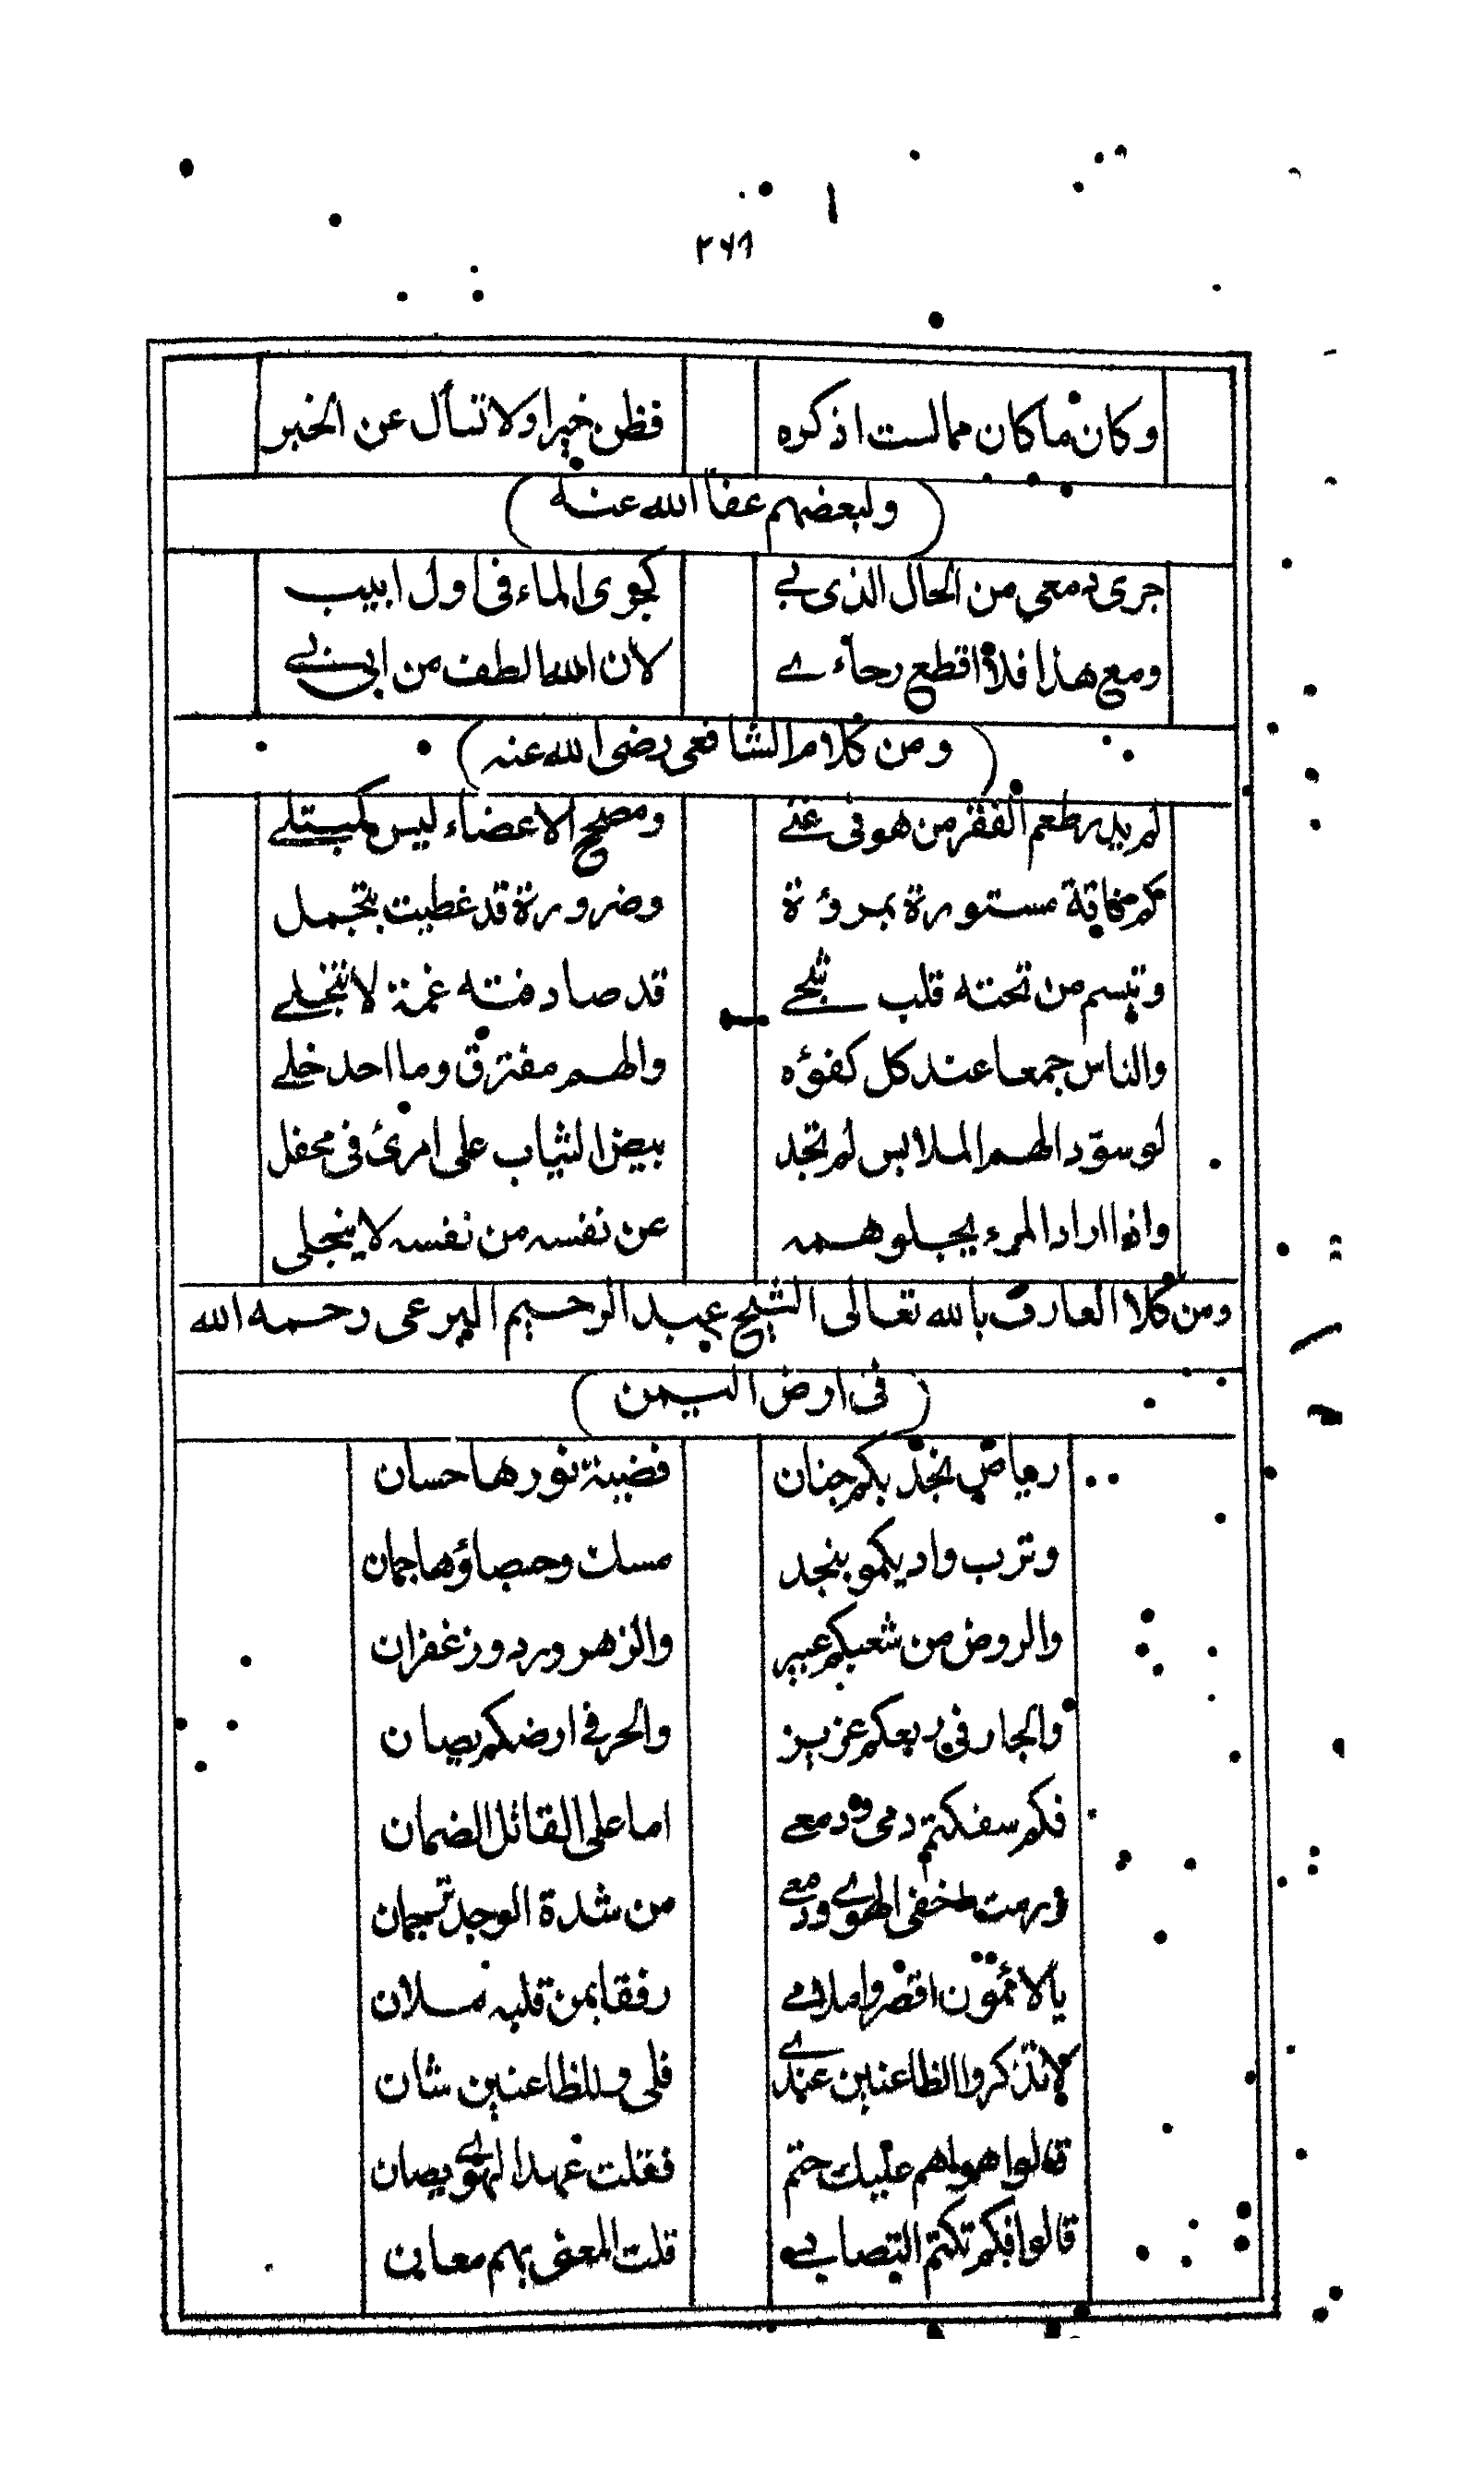 ٢٦٨
وكان ما كان مما لست اذكره فظن خيرا ولا تسأل عن الخبر
(ولبعضهم عفا الله عنه)
جرى دمعي من الحال الذى بے كجرى الماء فى اول ابيب
ومع هذا فلا اقطع رجاءے لان الله الطف من ابى بے
(ومن كلام الشافعى رضى الله عنه)
لم يدر طعم الفقر من هو فى غنے ومصحح الاعضاء ليس كمبتلے
كم فاقة مستورة بمروءة وضرورة قد غطيت بتجمل
وتبسم من تحته قلب شجے قد صادفته غمة لا تنجلے
والناس جمعا عند كل كفؤه والهم مفترق وما احد خلے
لو سوّد الهم الملابس لم تجد بيض الثياب على امرئ فى محفل
واذا اراد المرء يجلو همه عن نفسه من نفسه لا ينجلى
ومن كلا العارف بالله تعالى الشيخ عبد الرحيم البرعى رحمه الله
(فى ارض اليمن)
رياض نجد بكم جنان فضية نورها حسان
وترب واديكمو بنجد مسك وحصاؤها جمان
والروض من شعبكم عبير والزهر ورد وزعفران
والجار فى ربعكم عزيز والحر فے ارضكم يصان
فكم سفكتم دمى ودمعے اما على القاتل الضمان
ورمت اخفى الهوے ودمعے من شدة الوجد ترجمان
يا لائمون اقصروا ملامے رفقا بمن قلبه ملان
لا تذكروا الظاعنين عندے فلى وللظاعنين شان
قالوا هواهم عليك حتم فقلت عهد الهوے يصان
قالوا فكم تكتم التصابے قلت المعنى بهم معان